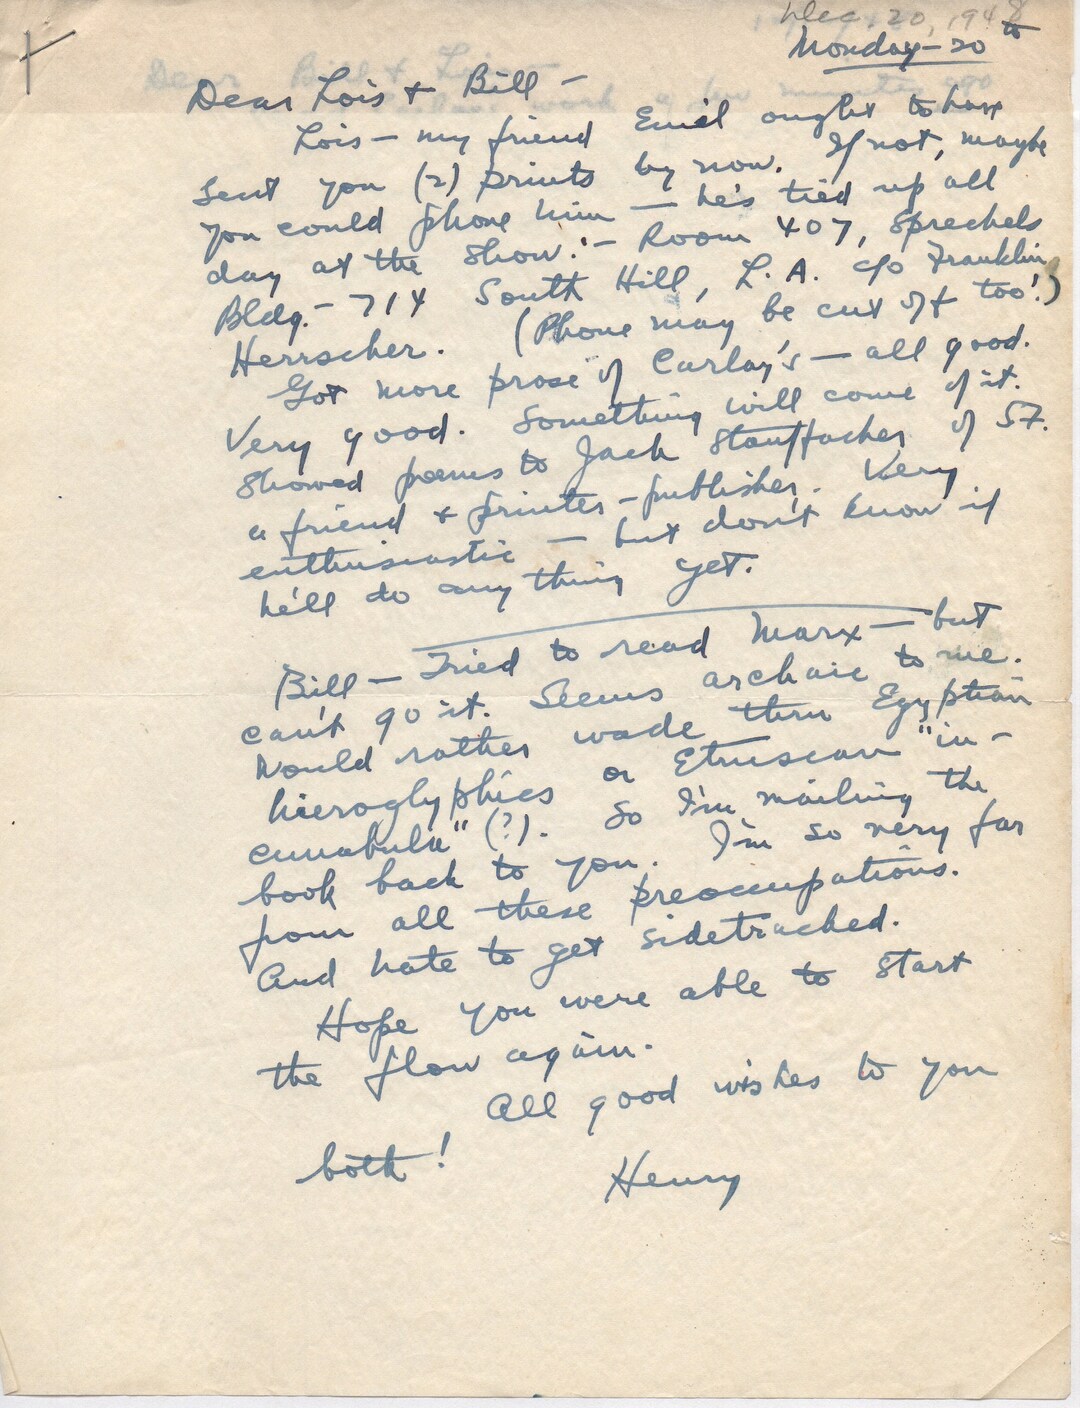 Dec. 20, 1948
Monday - 20th
Dear Lois + Bill -
Lois - my friend Emil ought to have
sent you (2) prints by now. If not, maybe
you could phone him - he's tied up all
day at the show. - Room 407, Spreckels
Bldg. - 714 South Hill, L.A. c/o Franklin
Herrscher. (Phone may be cut off too!)
Got more prose of Carlay's - all good.
Very good. Something will come of it.
Showed poems to Jack Stauffacher of SF.
a friend + printer-publisher. Very
enthusiastic - but don't know if
he'll do anything yet.
Bill - Tried to read Marx - but
can't go it. Seems archaic to me.
Would rather wade thru Egyptian
hieroglyphics or Etruscan "in-
cunabula" (?). So I'm mailing the
book back to you. I'm so very far
from all these preoccupations.
And hate to get sidetracked.
Hope you were able to start
the flow again.
All good wishes to you
both!
Henry